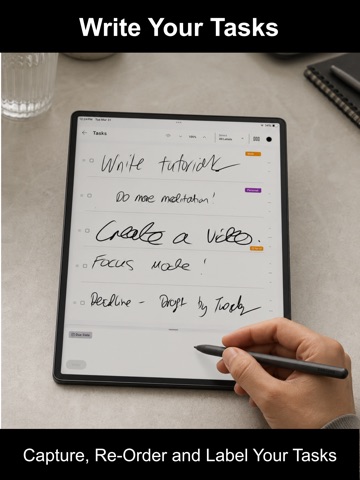 Write Your Tasks
Tasks
Write tutorials
Do more meditation!
Create a video.
Focus mode!
Deadline - Draft by Tuesday
Capture, Re-Order and Label Your Tasks